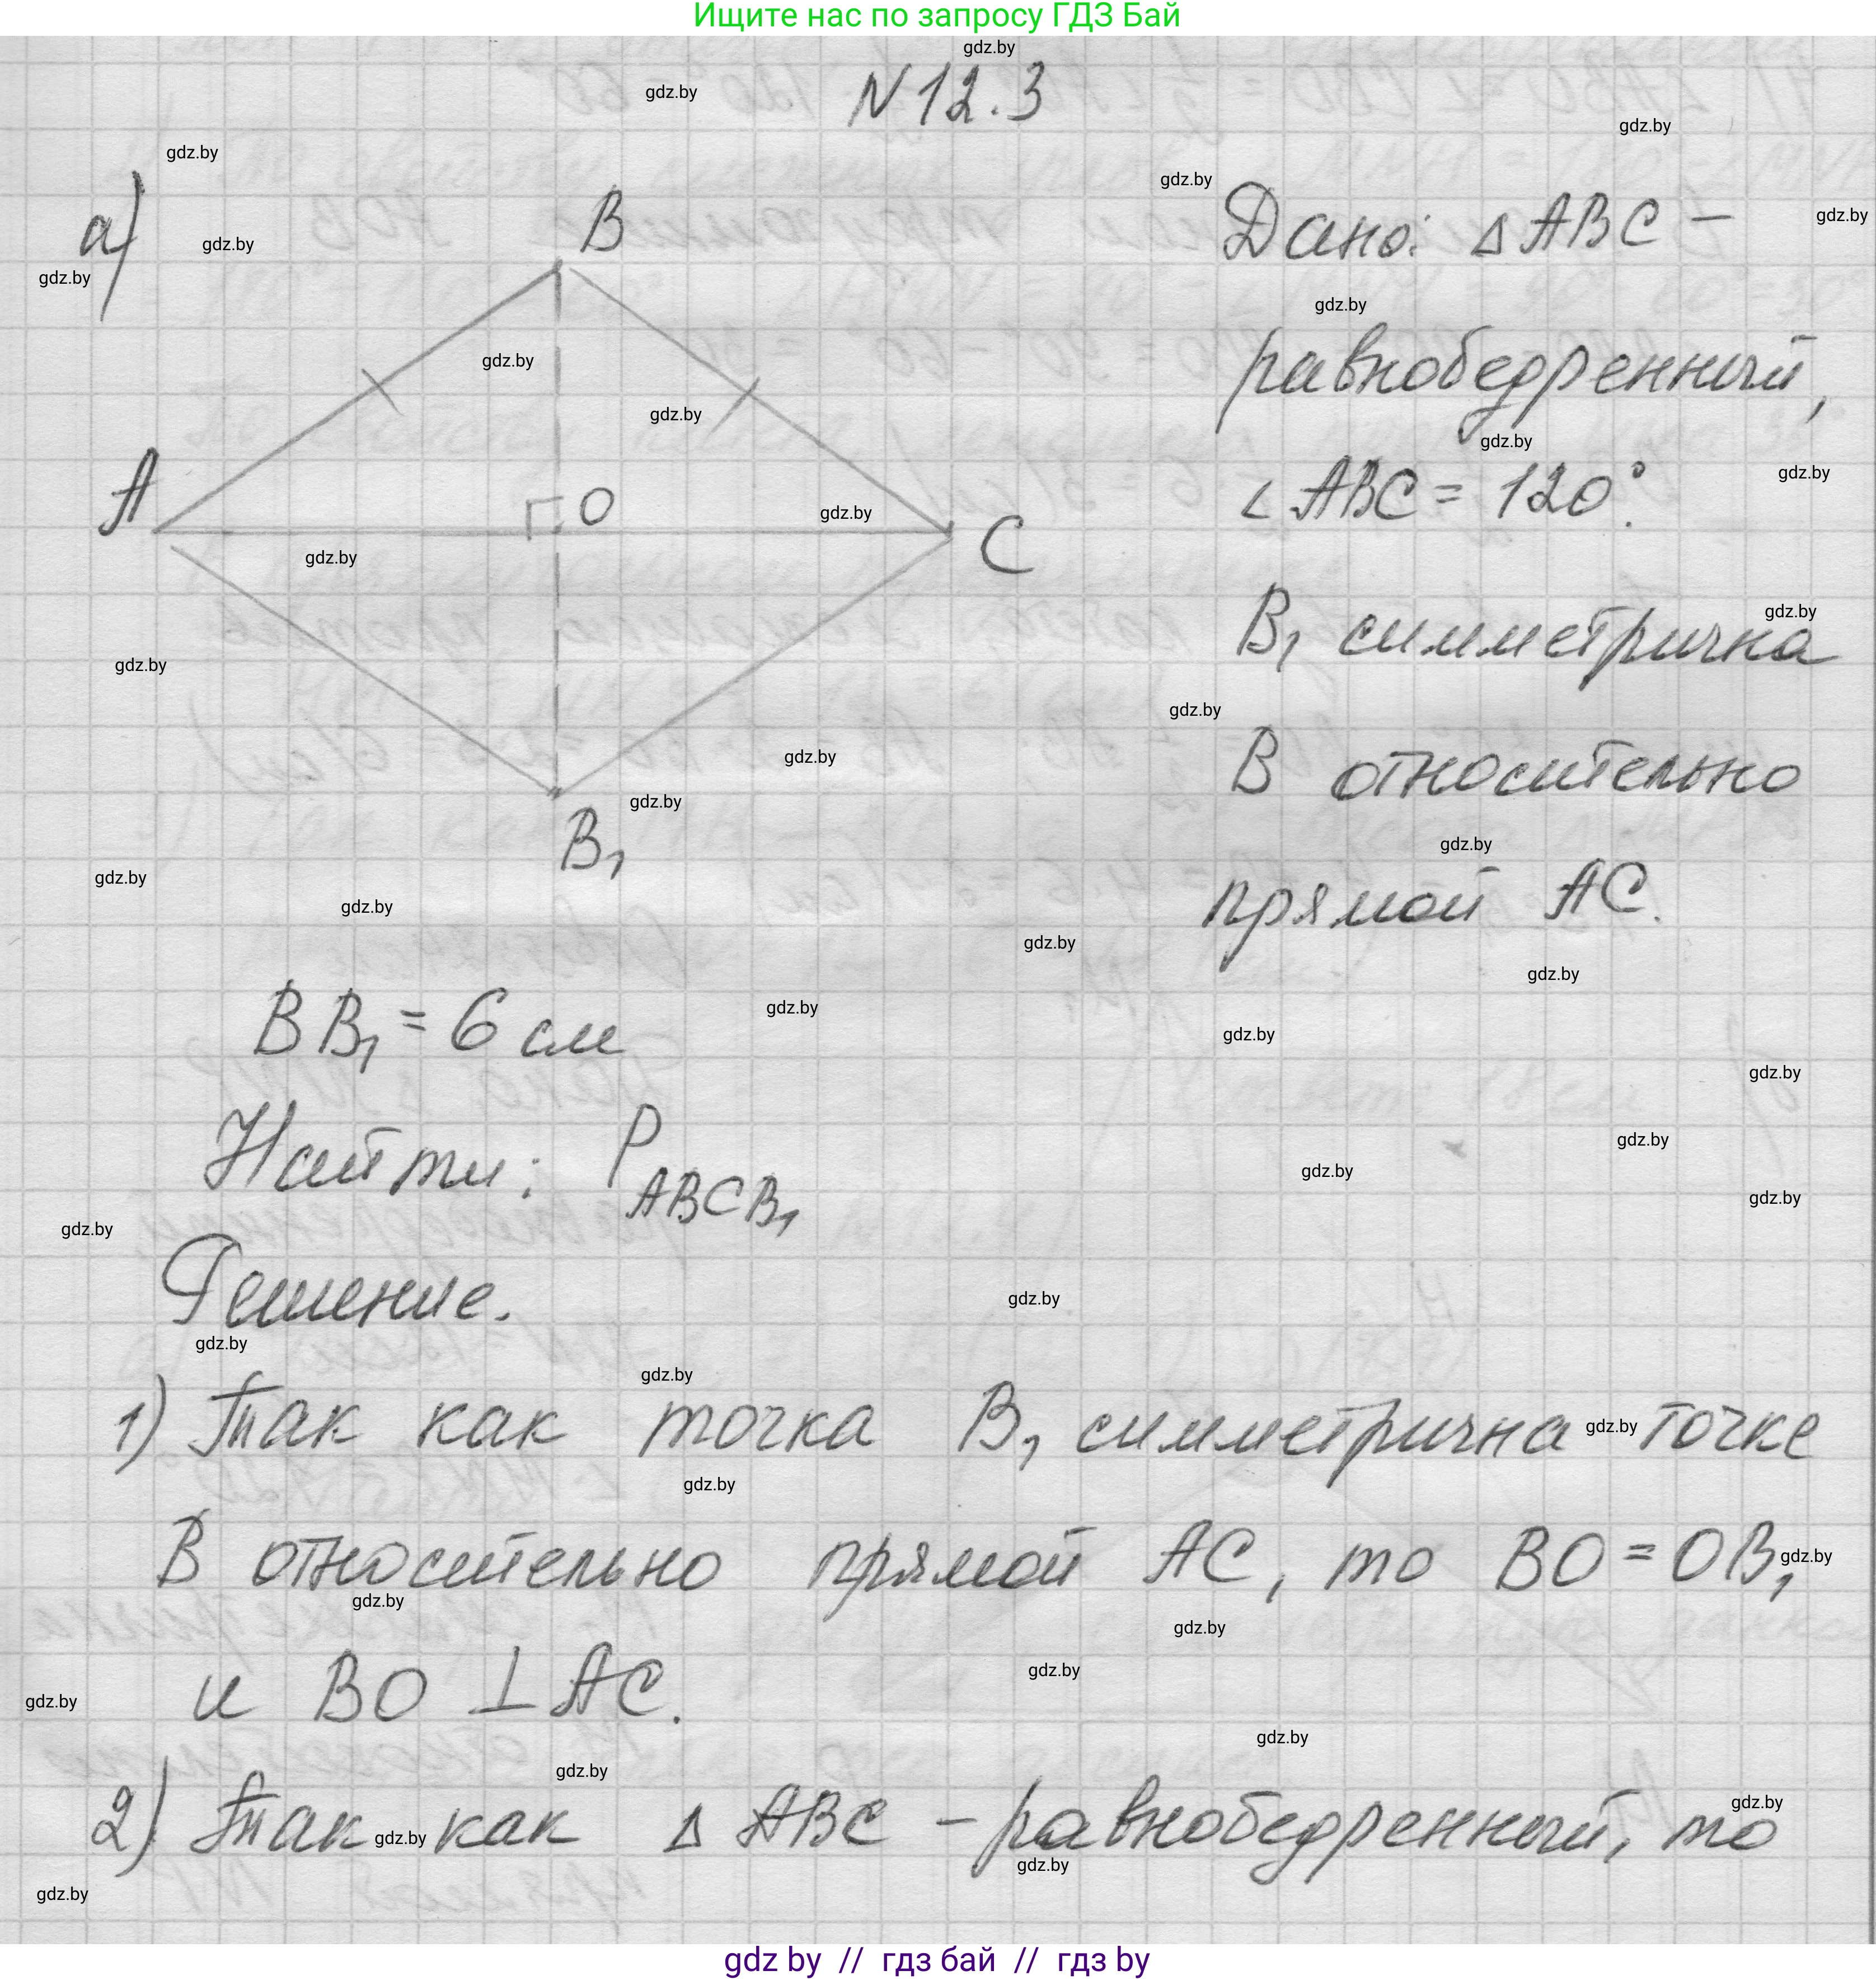 Ищите нас по запросу ГДЗ Бай
gdz.by
N 12.3
а)
B
A
O
C
B₁
Дано: △ABC –
равнобедренный,
∠ABC = 120°.
B₁ симметрична
B относительно
прямой AC.
BB₁ = 6 см
Найти: P ABCB₁
Решение.
1) Так как точка B₁ симметрична точке
B относительно прямой AC, то BO = OB₁,
и BO ⊥ AC.
2) Так как △ABC – равнобедренный, то
gdz by // гдз бай // гдз by